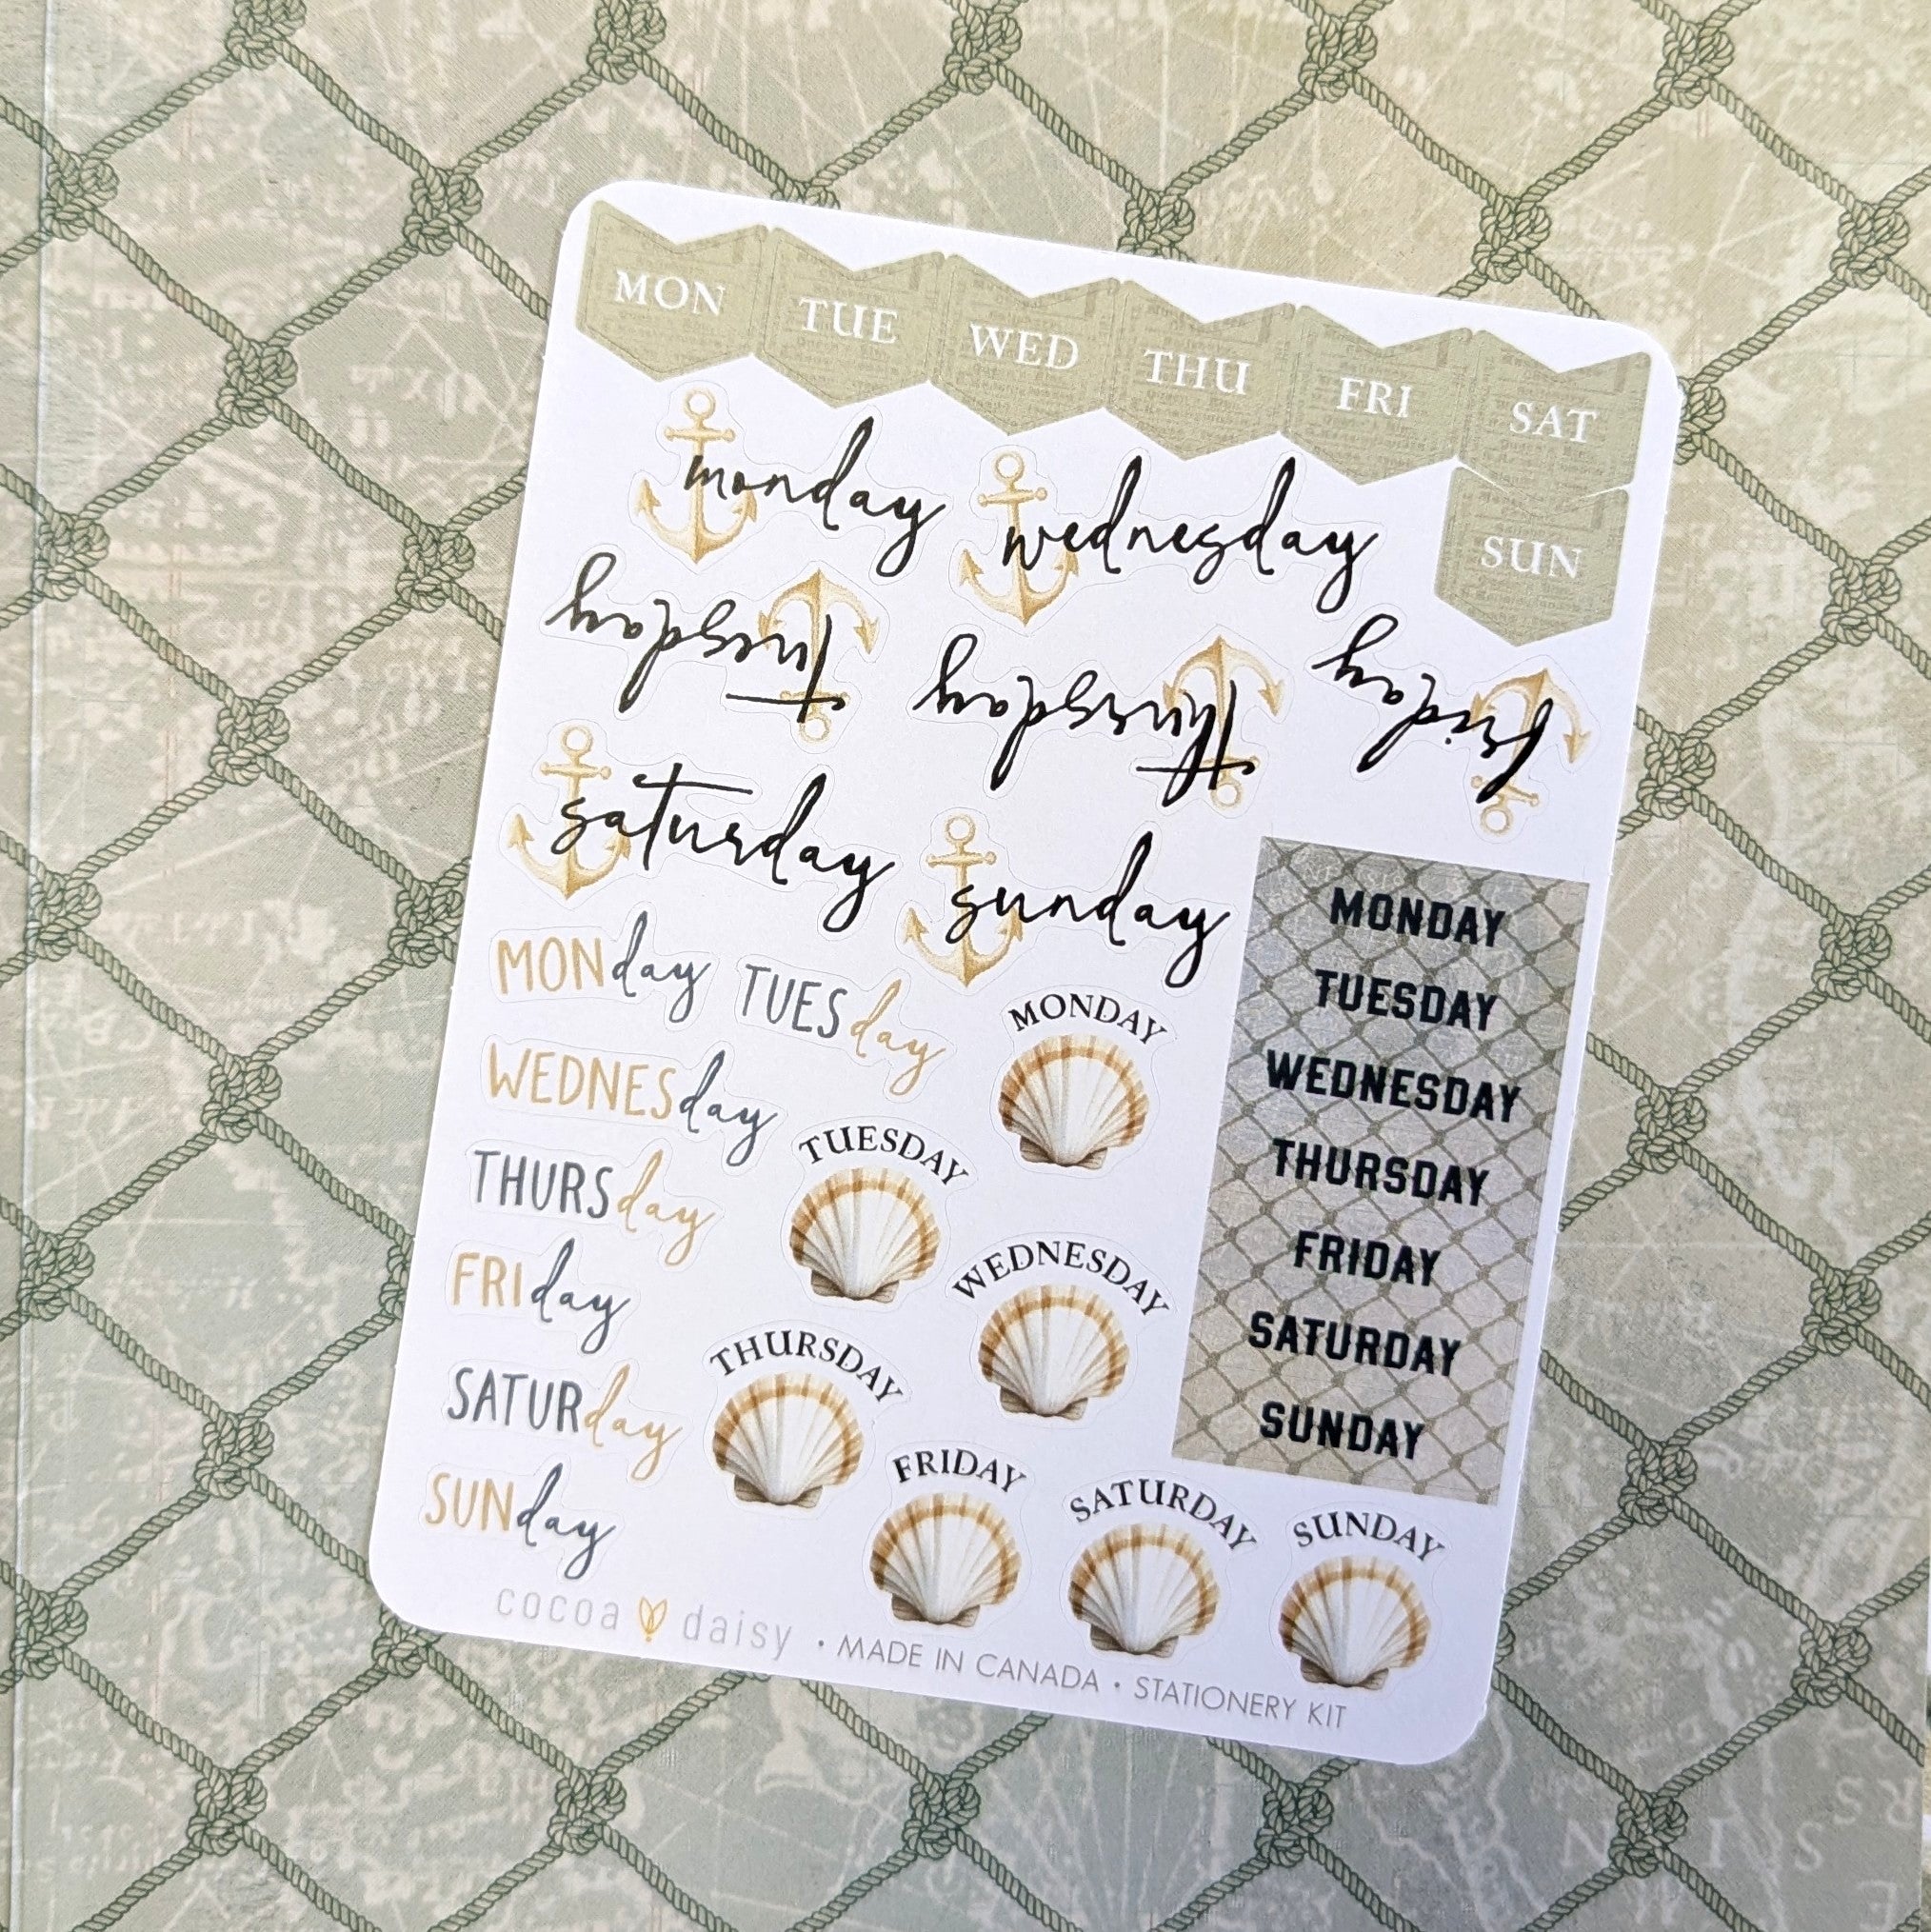 MON TUE WED THU FRI SAT
SUN
monday wednesday
tuesday thursday friday
saturday sunday
MONday TUESday
WEDNESday
THURSday
FRIday
SATURday
SUNday
MONDAY
TUESDAY
WEDNESDAY
THURSDAY
FRIDAY
SATURDAY
SUNDAY
MONDAY
TUESDAY
WEDNESDAY
THURSDAY
FRIDAY
SATURDAY
SUNDAY
cocoa daisy • MADE IN CANADA • STATIONERY KIT